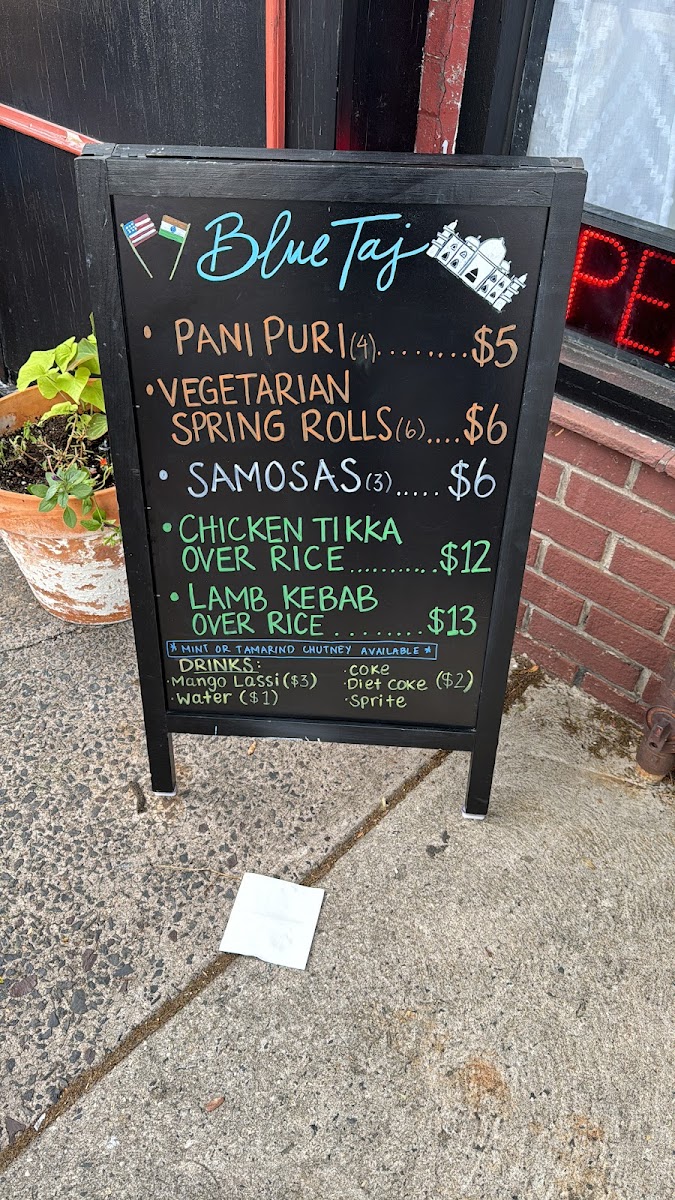 Blue Taj
• PANI PURI (4).........$5
• VEGETARIAN
SPRING ROLLS (6)....$6
• SAMOSAS (3).....$6
• CHICKEN TIKKA
OVER RICE...........$12
• LAMB KEBAB
OVER RICE........$13
* MINT OR TAMARIND CHUTNEY AVAILABLE *
DRINKS:
• Mango Lassi ($3)
• Water ($1)
• COKE
• Diet Coke ($2)
• Sprite
PE